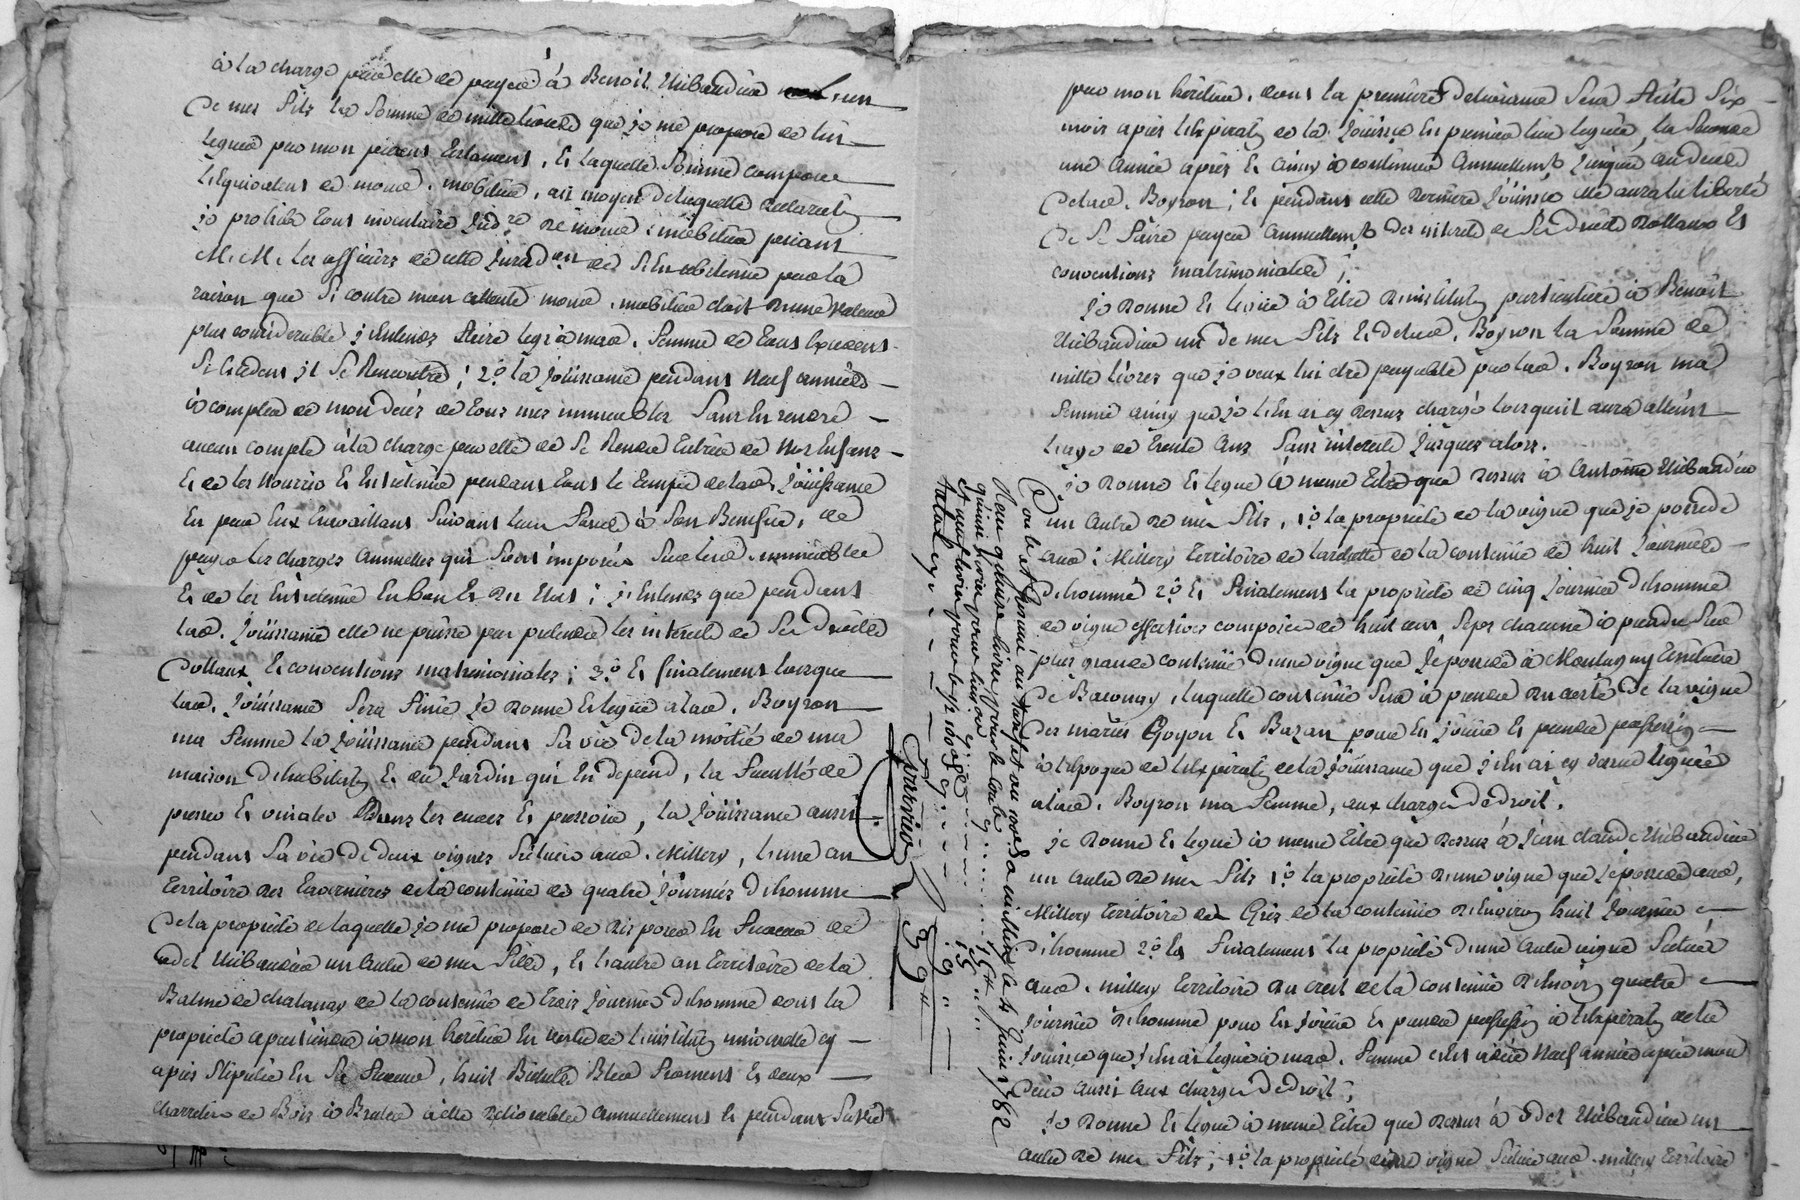 à la charge par elle de payer à Benoit Thibaudier un
de mes fils la somme de mille livres que je me propose de lui
leguer par mon présent testament, et laquelle somme compose
l'equivalent de mond. mobilier, au moyen de laquelle
je prohibe tous inventaire jud.re de mond. mobilier
M.M. les officiers de cette
raison que si contre mon attente mond. mobilier étoit d'une valeur
plus considerable j'entends faire legs à mad. femme de tous l'excedent
si excedent il se rencontre; 2.o la joüissance pendant neuf années
à compter de mon decés de tous mes immeubles sans en rendre
aucun compte à la charge par elle de se rendre tutrice de nos enfans
et de les nourrir et entretenir pendant tous le temps de lad. joüissance
en par eux travaillant suivant leur force à son benefice, de
payer les charges annuelles qui sont imposées sur lesd. immeubles
et de les entretenir en bon et dû état; j'entends que pendant
lad. joüissance elle ne puisse pas pretendre les interets de ses droits
dottaux et conventions matrimoniales; 3.o et finalement lorsque
lad. joüissance sera finie je donne et legue à lad. Boyron
ma femme la joüissance pendant sa vie de la moitié de ma
maison d'habitation et du jardin qui en depend, la faculté de
presser et vinater dans les cuves et pressoir, la joüissance aussi
pendant sa vie de deux vignes situées aud. Millery, l'une au
territoire des Tavernieres de la contenüe de quatre journées d'homme
de la propriété de laquelle je me propose de disposer en faveur de
odet Thibaudier un autre de mes fils, et l'autre au territoire de la
Balme de chalanay de la contenüe de trois journées d'homme dont la
propriété apartiendra à mon heritier en vertu de l'institution universelle cy
après stipulée en sa faveur, huit Bichets Bled froment et deux
charretées de Bois à Bruler à elle delivrables annuellement et pendant sa vie
par mon heritier, dont la premiere delivrance sera faite six
mois après l'expiration de la joüissance en premier lieu leguée, la seconde
une année après et ainsy à continuer annuellement jusqu'au decés
de lad. Boyron; et pendant cette derniere joüissance elle aura la liberté
de se faire payer annuellement des interets de ses droits dottaux et
conventions matrimoniales;
je donne et legue à titre d'institution particuliere à Benoit
Thibaudier un de mes fils et de lad. Boyron la somme de
mille livres que je veux lui etre payable par lad. Boyron ma
femme ainsy que je l'en ai cy dessus chargé lorsquil aura atteint
l'age de trente ans sans interets jusques alors.
je donne et legue à meme titre que dessus à Antoine Thibaudier
un autre de mes fils, 1.o la propriété de la vigne que je possede
aud. Millery territoire de de la contenüe de huit journées
d'homme 2.o et finalement la propriété de cinq journées d'homme
de vigne effectives composées de huit cent seps chacune à prendre sur
plus grande contenüe d'une vigne que je possede à Montagny territoire
de Baconay, laquelle contenüe sera à prendre du coté de la vigne
des mariés Goyon et Bazan pour en joüir et prendre possession
à l'epoque de l'expiration de la joüissance que j'en ai cy dessus leguée
à lad. Boyron ma femme, aux charges de droit.
je donne et legue à meme titre que dessus à Jean claude Thibaudier
un autre de mes fils 1.o la propriété d'une vigne que je possede aud.
Millery territoire du Grés de la contenüe d'environ huit journées
d'homme 2.o et finalement la propriété d'une autre vigne située
aud. millery territoire du cret de la contenüe d'environ quatre
journées d'homme pour en joüir et prendre possession à l'expiration de la
joüissance que j'en ai leguée à mad. femme neuf années après mon
decés aussi aux charges de droit;
je donne et legue à meme titre que dessus à odet Thibaudier un
autre de mes fils; 1.o la propriété d'une vigne située aud. millery territoire
Controllé et Insinué au tarif
à millery le 4 Juin 1782
Reçu quinze livres pour le contrôle
quinze livres pour
et neuf livres pour les 8/s 100 den.
total cy
39 #